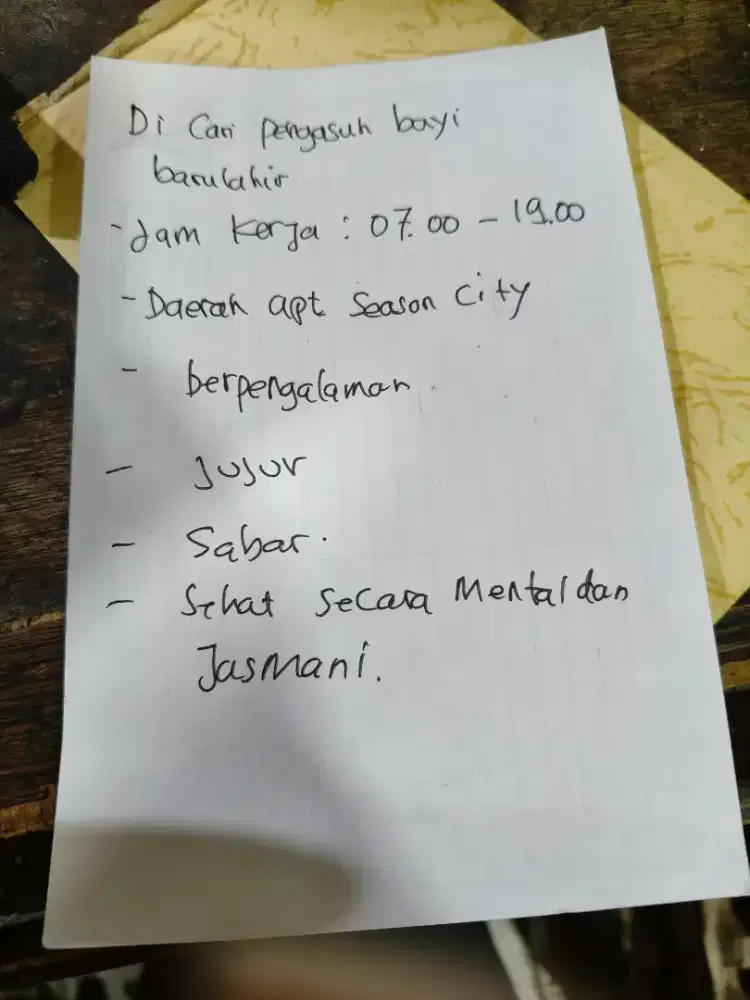 Di Cari pengasuh bayi
barulahir
- Jam Kerja : 07.00 - 19.00
- Daerah apt Season City
- berpengalaman
- Jujur
- Sabar.
- Sehat Secara Mental dan
Jasmani.